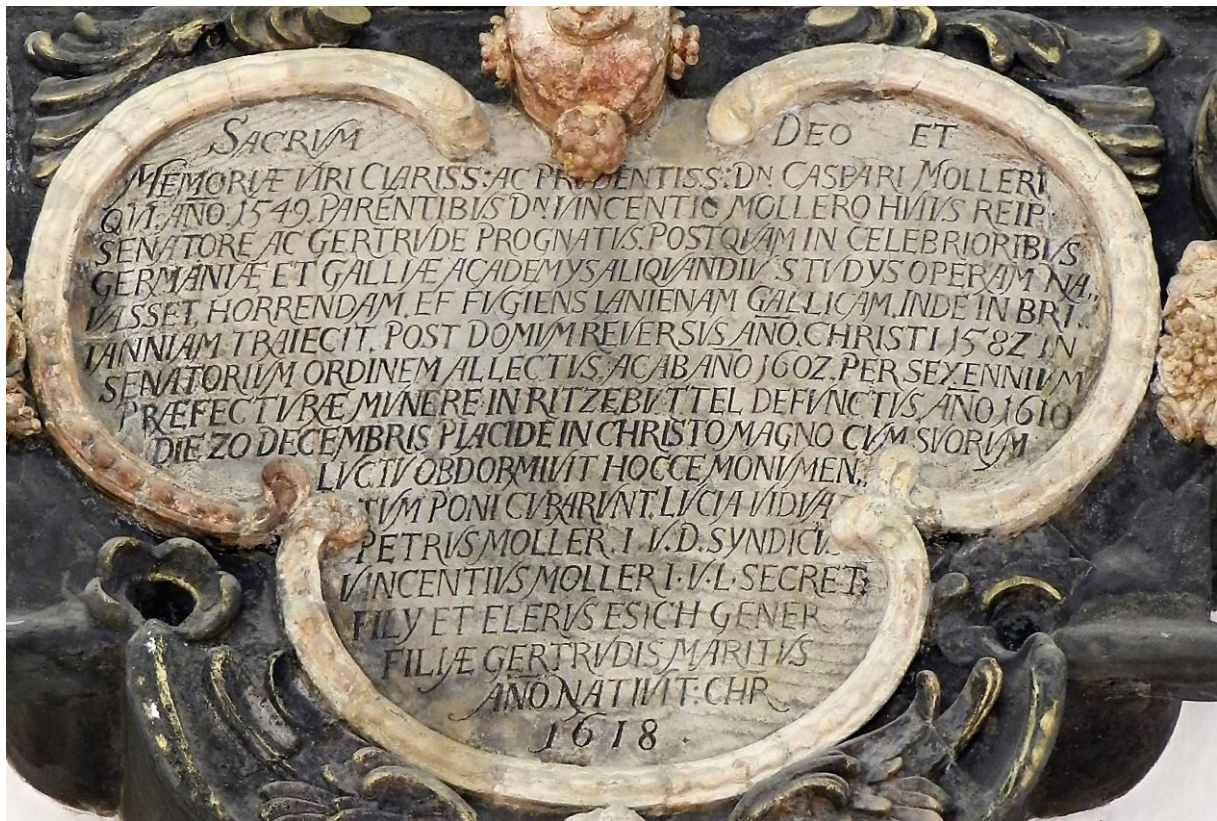 SACRVM DEO ET
MEMORIÆ VIRI CLARISS: AC PRUDENTISS: DN CASPARI MOLLERI
QVI. AÑO. 1549. PARENTIBVS DN VINCENTIO MOLLERO HVIVS REIP:
SENATORE AC GERTRVDE PROGNATVS. POSTQVAM IN CELEBRIORIBVS
GERMANIÆ ET GALLIÆ ACADEMYS ALIQVANDIV STVDYS OPERAM NA„
VASSET, HORRENDAM, EF FVGIENS LANIENAM GALLICAM, INDE IN BRI„
TANNIAM TRAIECIT, POST DOMVM REVERSVS AÑO. CHRISTI 1582 IN
SENATORIVM ORDINEM ALLECTVS, AC AB AÑO 1602. PER SEXENNIVM
PRÆFECTVRÆ MVNERE IN RITZEBVTTEL DEFVNCTVS AÑO 1610
DIE 20 DECEMBRIS PLACIDE IN CHRISTO MAGNO CVM SVORVM
LVCTV OBDORMIVIT HOCCE MONVMEN„
TVM PONI CVRARVNT. LVCIA VIDVA
PETRVS MOLLER. I. V. D. SYNDICVS
VINCENTIVS MOLLER I. V. L. SECRET:
FILY ET ELERVS ESICH GENER
FILIÆ GERTRVDIS MARITVS
AÑO NATIVIT: CHR
1618